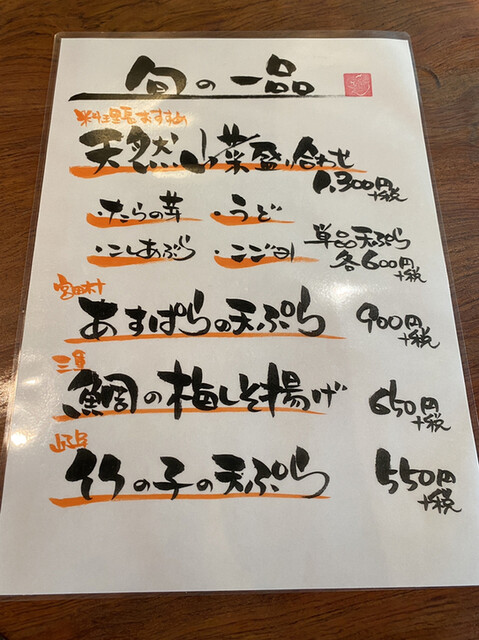 旬の一品
料理長おすすめ
天然山菜盛り合わせ
1,300円
+税
・たらの芽 ・うど
・こしあぶら ・こごみ
単品天ぷら
各600円
+税
宮田村
あすぱらの天ぷら 900円
+税
三重
鯛の梅しそ揚げ 650円
+税
竹の子の天ぷら 550円
+税